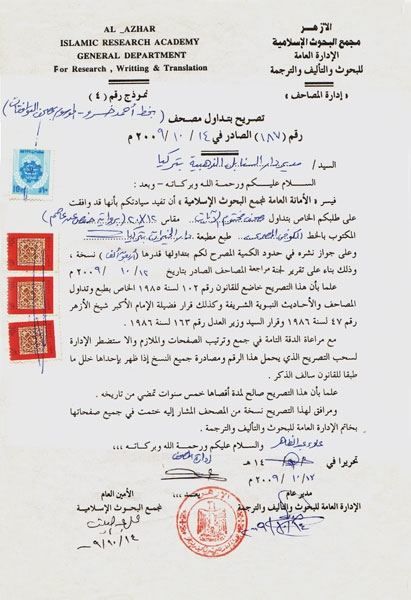 AL _AZHAR
ISLAMIC RESEARCH ACADEMY
GENERAL DEPARTMENT
For Research , Writting & Translation
الأزهــر
مجمع البحوث الإسلامية
الإدارة العامة
للبحوث والتأليف والترجمة
« إدارة المصاحف »
نموذج رقم ( ٤ )
تصريح بتداول مصحف
رقم ( ١٨٧ ) الصادر في ١٤ / ١٠ / ٢٠٠٩ م
السيد / مدير دار السنابل الذهبية بتركيا
السـلام عليـكـم ورحمـة اللـه وبركـاتـه - وبعد :
فيسر « الأمانة العامة لمجمع البحوث الإسلامية » أن تفيد سيادتكم بأنها قد وافقت
على طلبكم الخاص بتداول مصحف مقاس ٢٠X١٤
المكتوب بالخط طبع مطبعة
وعلى جواز نشره في حدود الكمية المصرح لكم بتداولها قدرها نسخة ،
وذلك بناء على تقرير لجنة مراجعة المصاحف الصادر بتاريخ ١٢ / ١٠ / ٢٠٠٩ م
علما بأن هذا التصريح خاضع للقانون رقم ١٠٢ لسنة ١٩٨٥ الخاص بطبع وتداول
المصاحف والأحاديث النبوية الشريفة وكذلك قرار فضيلة الإمام الأكبر شيخ الأزهر
رقم ٤٧ لسنة ١٩٨٦ وقرار السيد وزير العدل رقم ١٦٣ لسنة ١٩٨٦ .
مع مراعاة الدقة التامة في جمع وترتيب الصفحات والملازم وإلا ستضطر الإدارة
لسحب التصريح الذي يحمل هذا الرقم ومصادرة جميع النسخ إذا ظهر بإحداها خلل ما
طبقا للقانون سالف الذكر .
علما بأن هذا التصريح صالح لمدة أقصاها خمس سنوات تمضي من تاريخه .
ومرافق لهذا التصريح نسخة من المصحف المشار إليه ختمت في جميع صفحاتها
بخاتم الإدارة العامة للبحوث والتأليف والترجمة .
والسـلام عليـكم ورحمـة اللـه وبـركاتـه ،،،
تحريرا في ١٤ هـ
١٢ / ١٠ / ٢٠٠٩ م
إدارة المصاحف
يعتمد ،،،
مدير عام
الإدارة العامة للبحوث والتأليف والترجمة
الأمين العام
لمجمع البحوث الإسلامية
٩/١٠/١٤